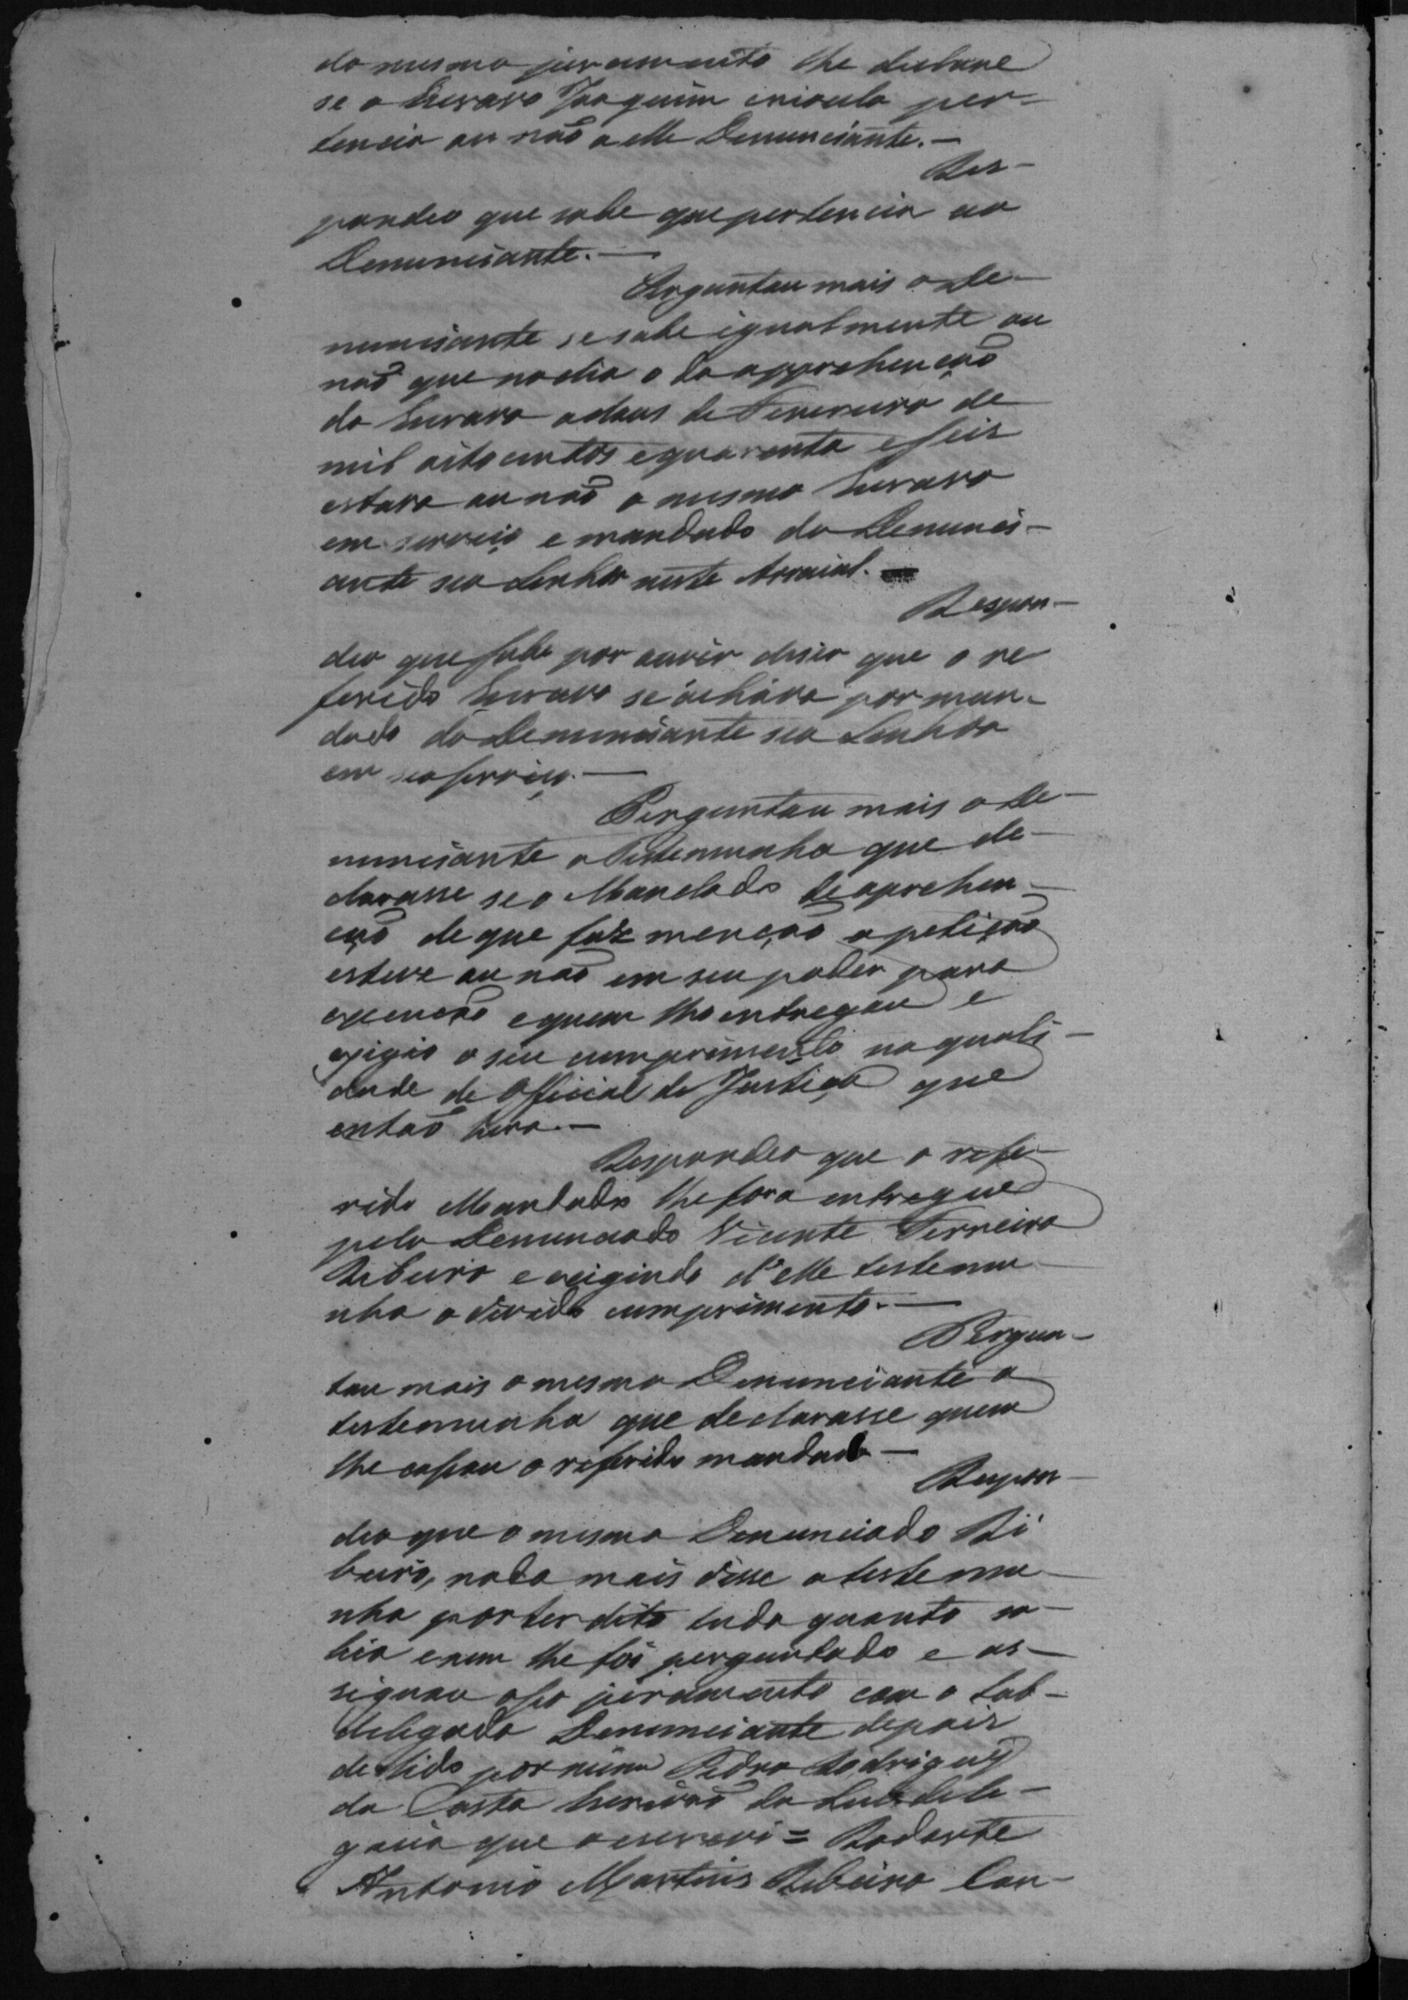 do mesmo juramento lhe declare
se o Escravo Joaquim crioulo per-
tencia ou não a elle Denunciante. —
Res-
pondeo que sabe que pertencia ao
Denunciante. —
Perguntou mais o De-
nunciante se sabe igualmente ou
não que no dia o da apprehenção
do Escravo a dous de Fevereiro de
mil oitocentos e quarenta e seis
estava ou não o mesmo Escravo
em serviço e mandado do Denunci-
ante seo Senhor neste Arraial. —
Respon-
deo que sabe por ouvir diser que o re
ferido Escravo se achava por man-
dado do Denunciante seo Senhor
em seo serviço. —
Perguntou mais o De-
nunciante a Testemunha que de-
clarasse se o Mandado de aprehen-
ção de que faz menção a petição
esteve ou não em seu poder para
execução e quem lho entregou e
exigio o seu cumprimento na quali-
dade de Official de Justiça que
então hera. —
Respondeo que o refe-
rido Mandado lhe fora entregue
pelo Denunciado Vicente Ferreira
Ribeiro e exigindo d'elle testemu-
nha o devido cumprimento. —
Pergun-
tou mais o mesmo Denunciante a
testemunha que declarasse quem
lhe o referido mandado —
Respon-
deo que o mesmo Denunciado Ri
beiro, nada mais disse a testemu-
nha por ter dito tudo quanto sa-
bia e nem lhe foi perguntado e as-
signou o seo juramento com o Sub-
delegado Denunciante depois
de lido por mim Pedro Rodrigues
da Costa Escrivão da Subdele-
gacia que o escrevi = Rodarte
Antonio Martins Ribeiro Con-